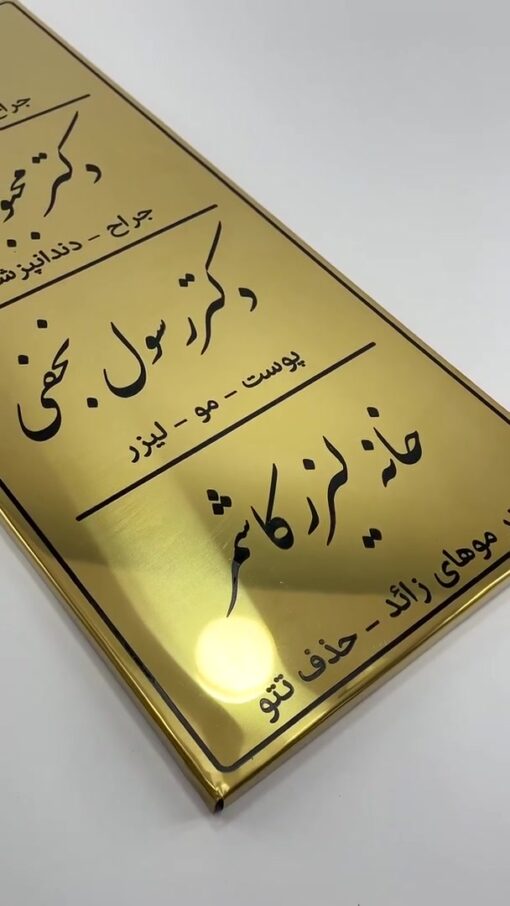 دکتر
جراح - دندانپزشک
دکتر رسول نجفی
پوست - مو - لیزر
خانه لیزر کاشمر
موهای زائد - حذف تتو